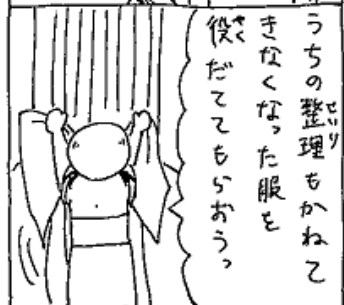 うちの整理もかねて
きなくなった服を
役だててもらおうっ